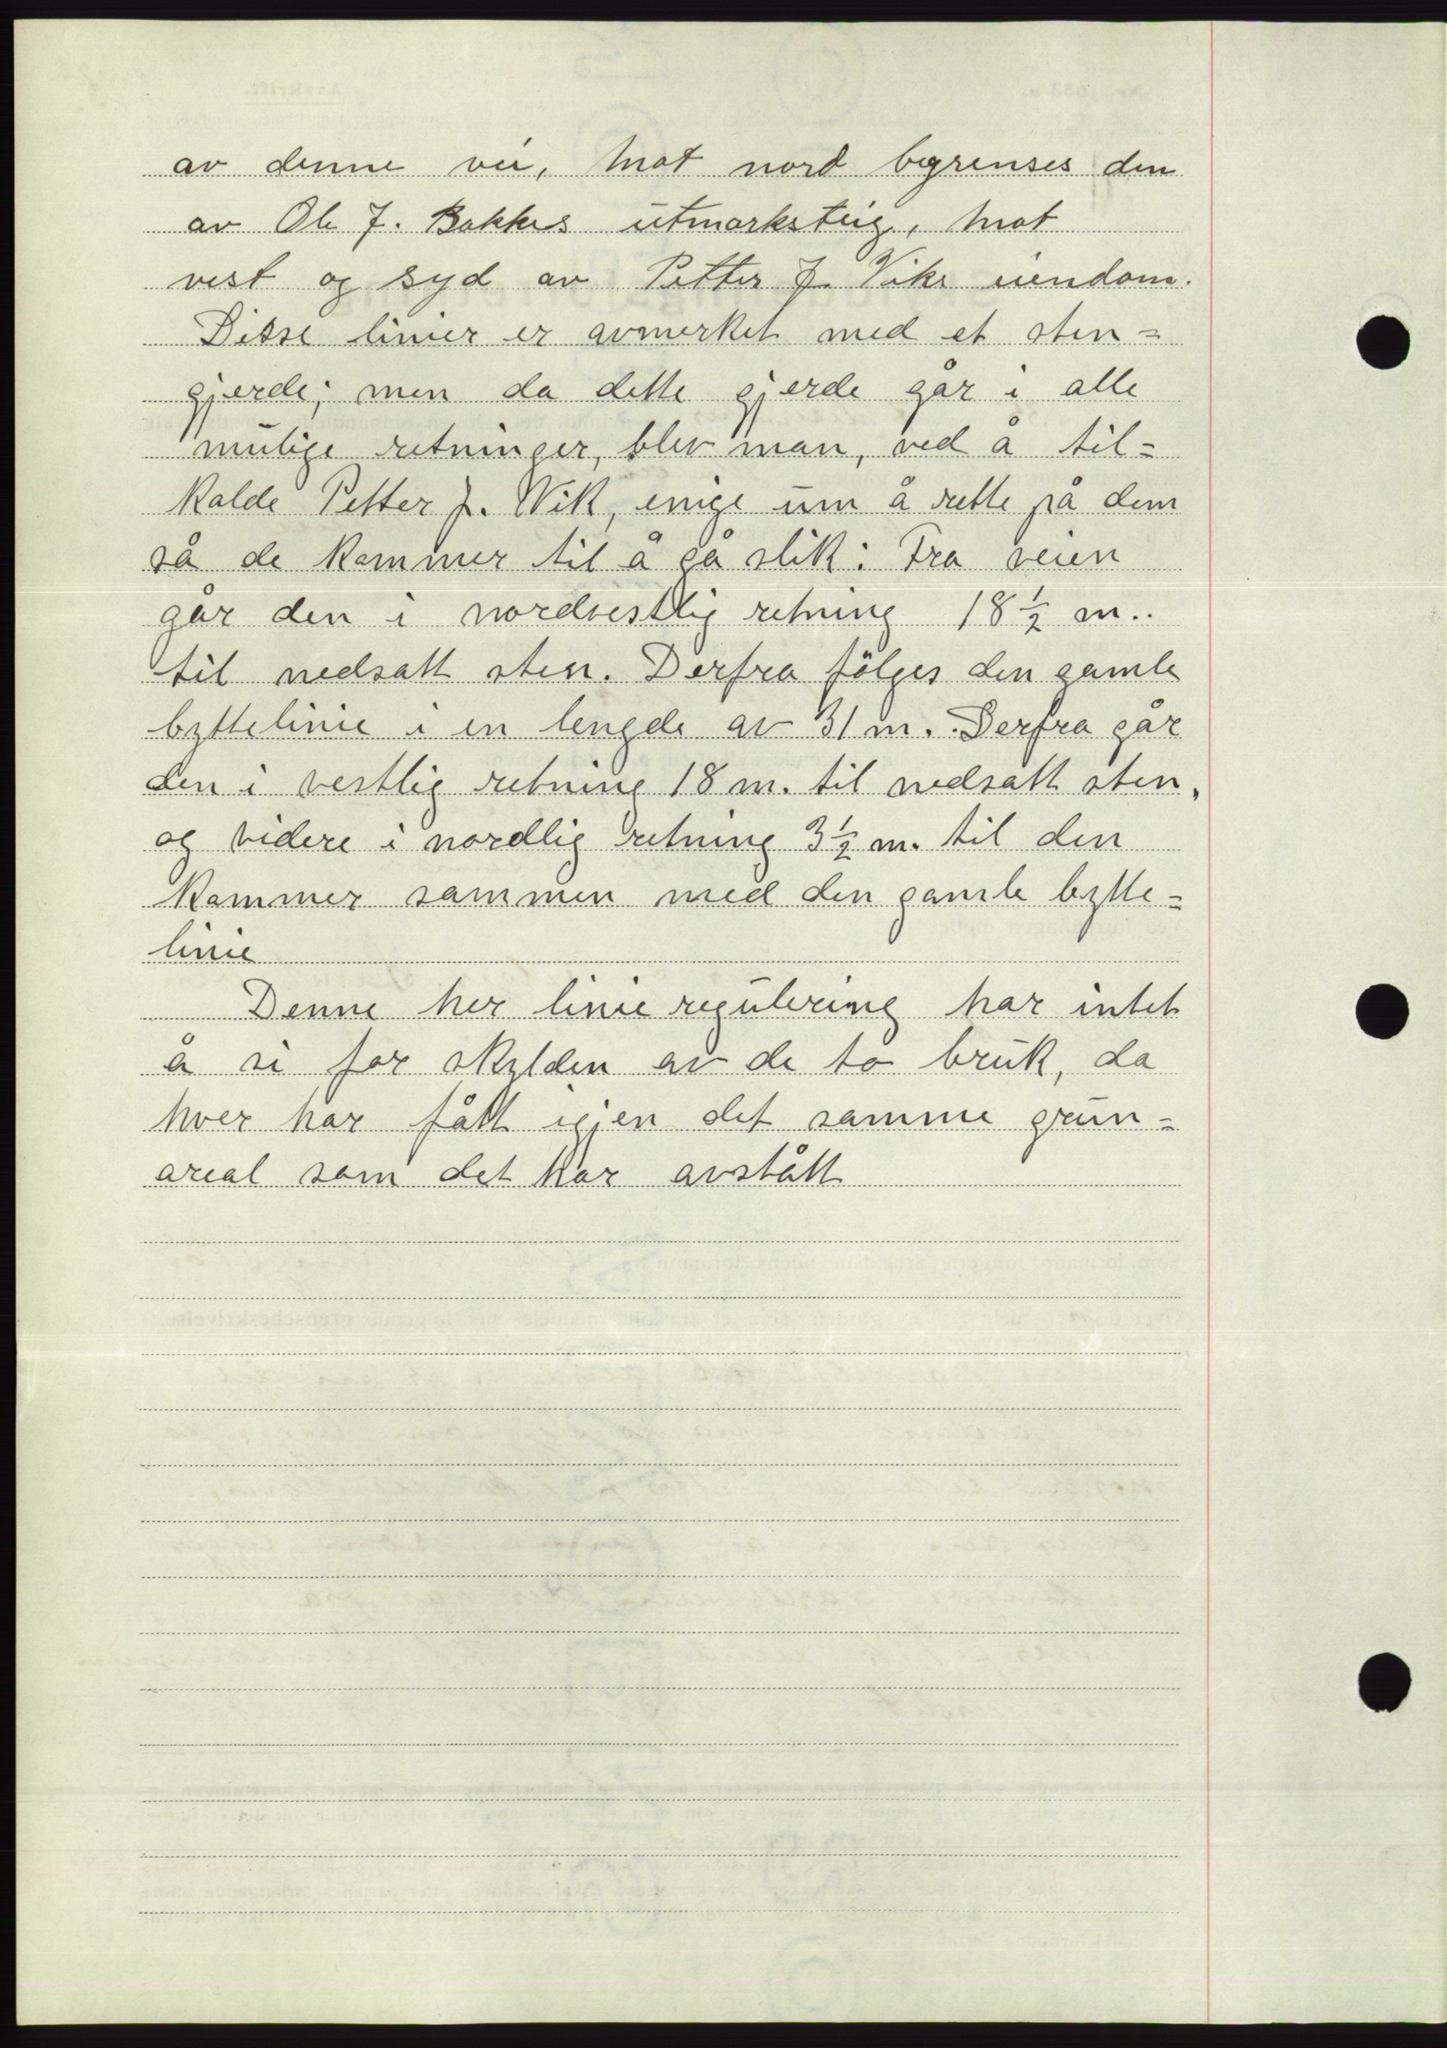 av denne vei, Mot nord begrenses den
av Ole J. Bakkes utmarksteig, mot
vest og syd av Petter J. Viks eiendom.
Disse linier er avmerket med et sten=
gjerde; men da dette gjerde går i alle
mulige retninger, blev man, ved å til=
kalde Petter J. Vik, enige um å rette på dem
så de kommer til å gå slik: Fra veien
går den i nordvestlig retning 18½ m..
til nedsatt sten. Derfra følges den gamle
byttelinie i en lengde av 31 m. Derfra går
den i vestlig retning 18 m. til nedsatt sten,
og videre i nordlig retning 3½ m. til den
kommer sammen med den gamle bytte=
linie
Denne her linie regulering har intet
å si for skylden av de to bruk, da
hver har fått igjen det samme grun=
areal som det har avstått